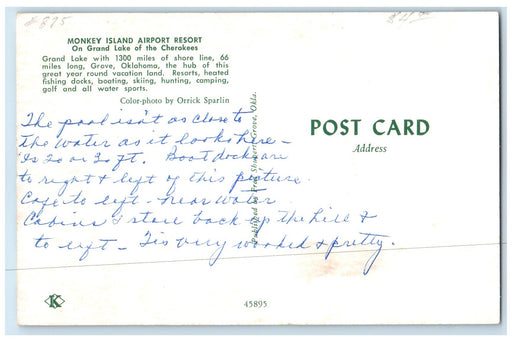 #875
$4.00
MONKEY ISLAND AIRPORT RESORT
On Grand Lake of the Cherokees
Grand Lake with 1300 miles of shore line, 66
miles long, Grove, Oklahoma, the hub of this
great year round vacation land. Resorts, heated
fishing docks, boating, skiing, hunting, camping,
golf and all water sports.
Color-photo by Orrick Sparlin
The pool isn't as close to
the water as it looks here –
Is 20 or 30 ft. Boat docks are
to right & left of this picture.
Cafe to left – near water
Cabins & store back up the hill &
to left – Tis very wooded & pretty.
Grove, Okla.
Published by
POST CARD
Address
K
45895